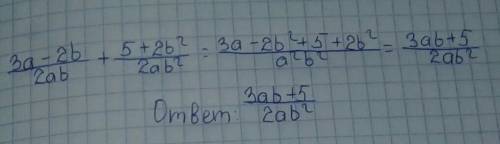 (3a - 2b)/(2ab) + (5 + 2b²)/(2ab²) = (3a - 2b² + 5 + 2b²)/(a²b²) = (3ab + 5)/(2ab²)
Ответ: (3ab + 5)/(2ab²)